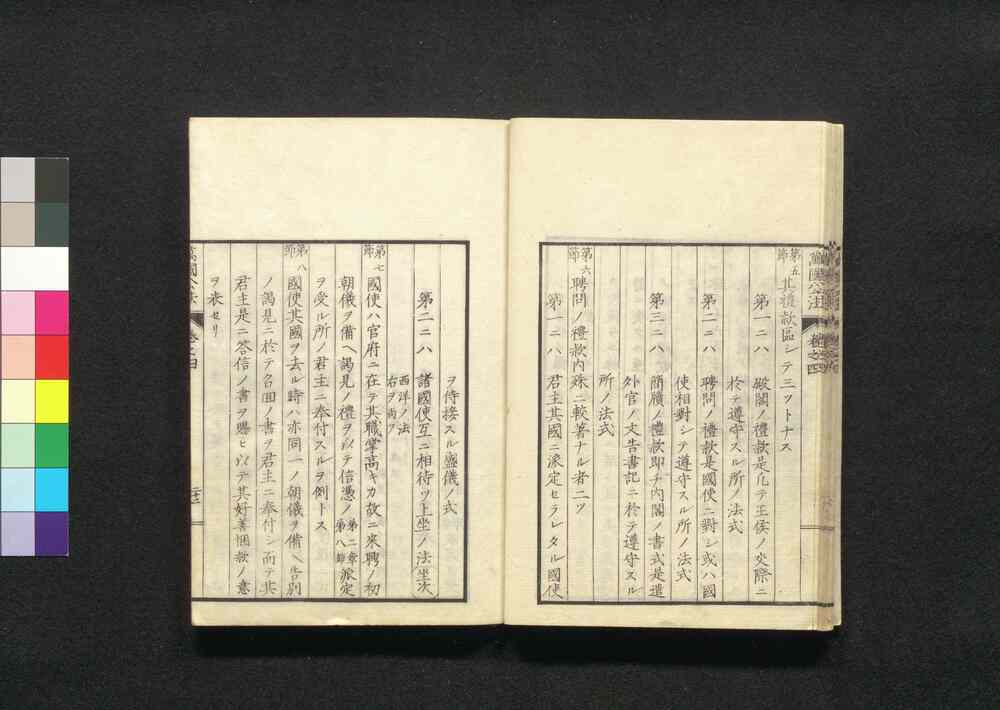 第五節 其禮款區シテ三ツトナス
第一ニハ 破閣ノ禮款是凡テ王侯ノ交際ニ
於テ遵守スル所ノ法式
第二ニハ 聘問ノ禮款是國使ニ對シ或ハ國
使相對シテ遵守スル所ノ法式
第三ニハ 簡牘ノ禮款即チ内閣ノ書式是遣
外官ノ文告書記ニ於テ遵守スル
所ノ法式
第六節 聘問ノ禮款内殊ニ較著ナル者二ツ
第一ニハ 君主其國ニ派定セラレタル國使
ヲ待接スル盛儀ノ式
第二ニハ 諸國使互ニ相待ツ上坐ノ法坐次
西洋ノ法
右ヲ尚フ
第七節 國使ハ官府ニ在テ其職掌高キカ故ニ來聘ノ初
朝儀ヲ備ヘ謁見ノ禮ヲ以テ信憑ノ第二章第八節派定
ヲ受ル所ノ君主ニ奉付スルヲ例トス
第八節 國使其國ヲ去ル時ハ亦同一ノ朝儀ヲ備ヘ告別
ノ謁見ニ於テ召回ノ書ヲ君主ニ奉付シ而テ其
君主是ニ答信ノ書ヲ與ヒ以テ其好善悃款ノ意
ヲ表セリ